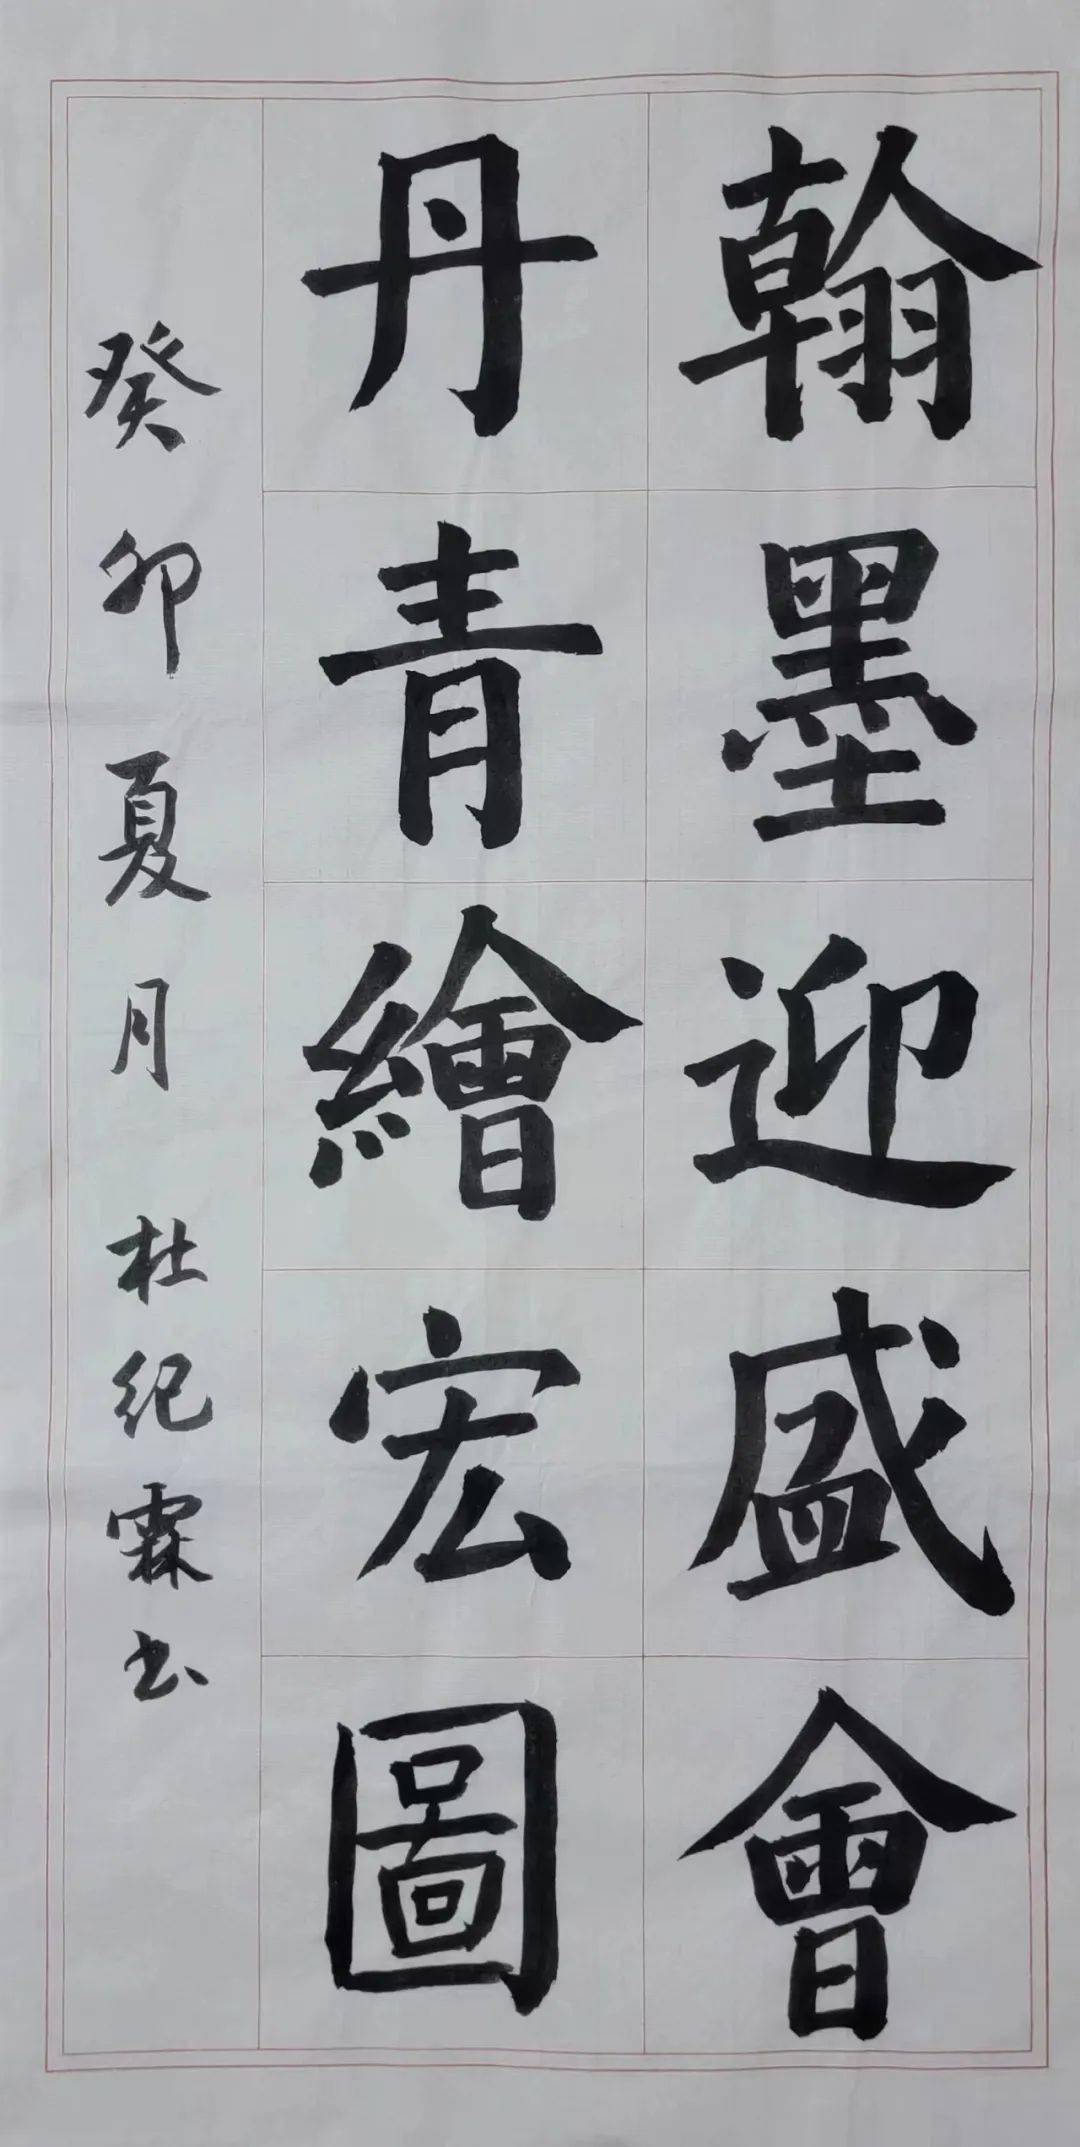 翰墨迎盛會
丹青繪宏圖
癸卯夏月 杜纪霖书